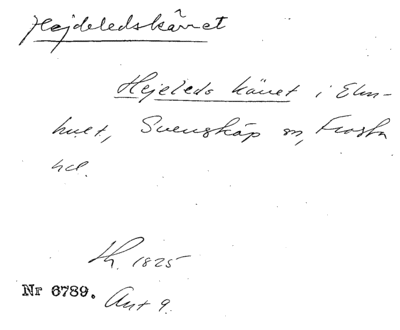 Hejdeledskärret
Hejeleds käret i Elm-
hult, Svensköp sn, Frosta
hd.
Lh. 1825
Nr 6789. Ant 9.